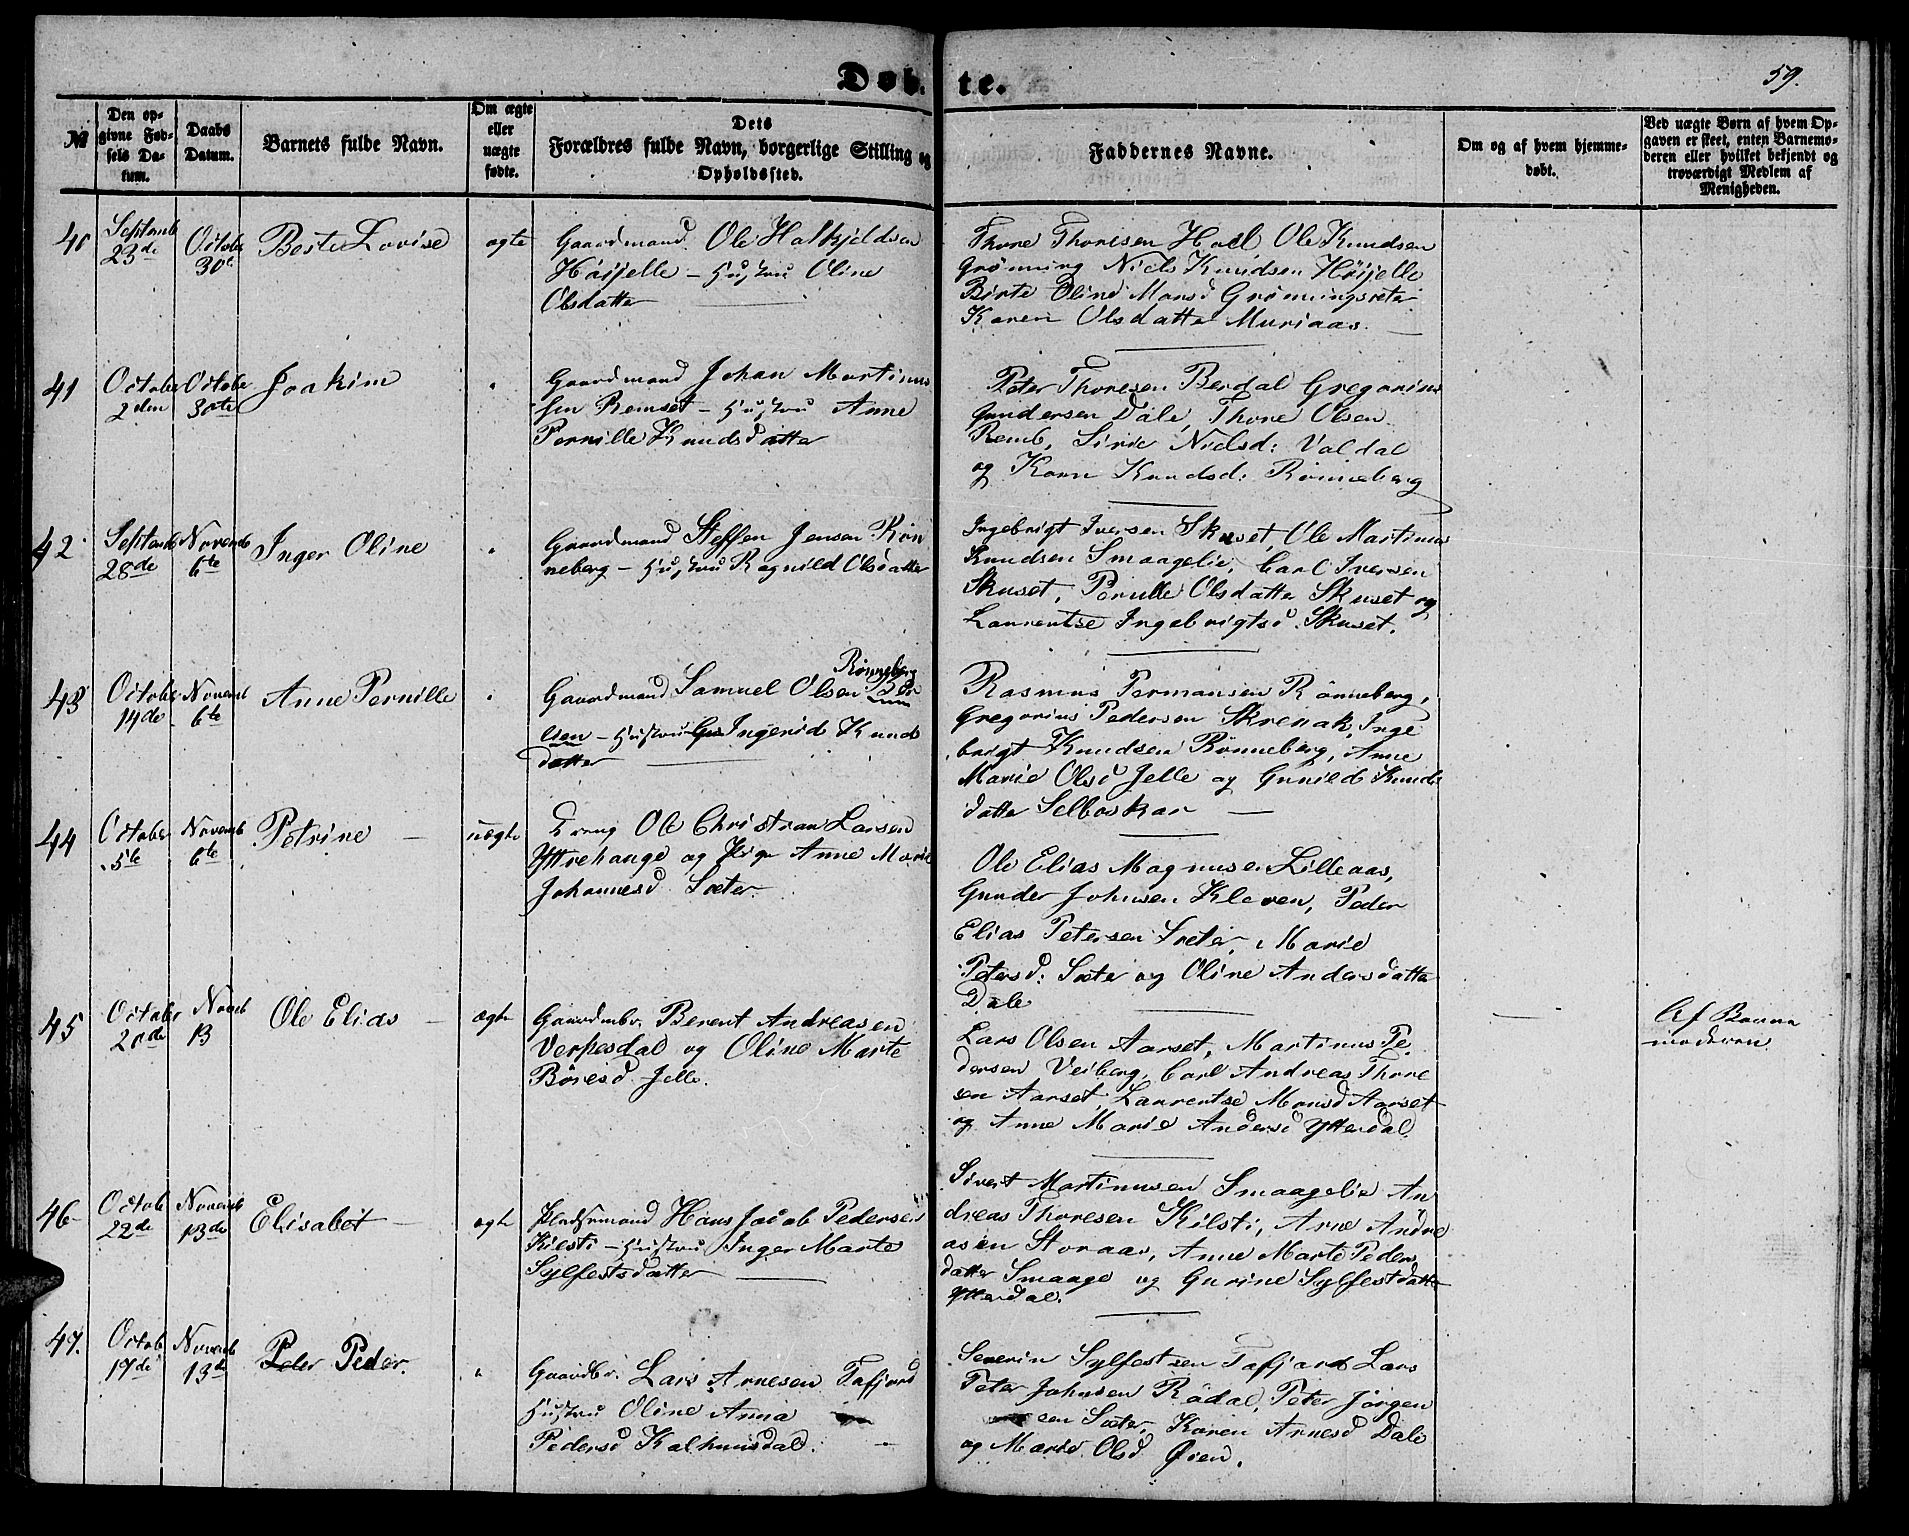 Døbte.
59.
No
Den opgivne Fødsels Datum.
Daabs Datum.
Barnets fulde Navn.
Om ægte eller uægte fødte.
Dets Forældres fulde Navn, borgerlige Stilling og Opholdssted.
Faddernes Navne.
Om og af hvem hjemmedøbt.
Ved uægte Børn af hvem Opgaven er skeet, enten Barnemoderen eller hvilket bekjendt og troværdigt Medlem af Menigheden.
40
Septemb 23de
Octobe 30te
Berte Lovise
ægte
Gaardmand Ole Halkjeldsen
Høijelle - Hustru Oline
Olsdatter
Thore Thoresen Hoel Ole Knudsen
Grønning Niels Knudsen Høijelle
Birte Oline Monsd Grønningsæter
Karen Olsdatter Muriaas.
41
Octobe 2den
Octobe 30te
Joakim
"
Gaardmand Johan Martinus
sen Remset - Hustru Anne
Pernille Knudsdatter
Peter Thoresen Berdal Gregorius
Gundersen Dale, Thore Olsen
Remb, Sirie Nielsd: Valdal
og Karn Knudsd: Rönneberg
42
Septembe 28de
Novemb 6te
Inger Oline
"
Gaardmand Steffen Jensen Røn
neberg - Hustru Ragnild Olsdatter
Ingebrigt Iversen Skuset, Ole Martinus
Knudsen Smaagelie, Carl Iversen
Skuset, Pernille Olsdatter Skuset og
Laurentse Ingebrigtsd. Skuset.
43
Octobe 14de
Novemb 6te
Anne Pernille
"
Rønneberg
Gaardmand Samuel Olsen
Hustru Ingerid Knuds
datter
Rasmus Permansen Rönneberg,
Gregorius Pedersen Skrenak, Inge
brigt Knudsen Rönneberg, Anne
Marie Olsd Jelle og Gunild Knuds
datter Selboskar
44
Octobe 5te
Novemb 6te
Petrine
uægte
Dreng Ole Christian Larsen
Yttrehauge og Pige Anne Marie
Johannesd Sæter.
Ole Elias Magnusen Lilleaas,
Gunder Johnsen Kleven, Peder
Elias Petersen Sæter, Marie
Petersd: Sæter og Oline Andersdatter
Dale
45
Octobe 20de
Novemb 13
Ole Elias
ægte
Gaardmbr. Berent Andreasen
Verpesdal og Oline Marte
Böresd Jelle.
Lars Olsen Aarset, Martinus Pe
dersen Veiberg, Carl Andreas Thore
sen Aarset, Laurentse Monsd Aarset
og Anne Marie Andersd Ytterdal.
Af Barne
moderen.
46
Octob 22de
Novemb 13de
Elisabet
ægte
Pladsemand Hans Jacob Pedersen
Kilsti - Hustru Inger Marte
Sylfestsdatter
Sivert Martinusen Smaagelie An
dreas Thoresen Kilsti, Arne Andre
asen Storaas, Anne Marte Peders
datter Smaage og Gurine Sylfestdatter
Ytterdal.
47.
Octob 17de
Novemb 13de
Peter Peder.
"
Gaardbr. Lars Arnesen Tafjord
Hustru Oline Anna
Pedersd Kalhuusdal.
Severin Sylfestsen Tafjord Lars
Peter Johnsen Rödal, Peter Jörgen
sen Sæter, Karen Arnesd Dale
og Marie Olsd Øien.